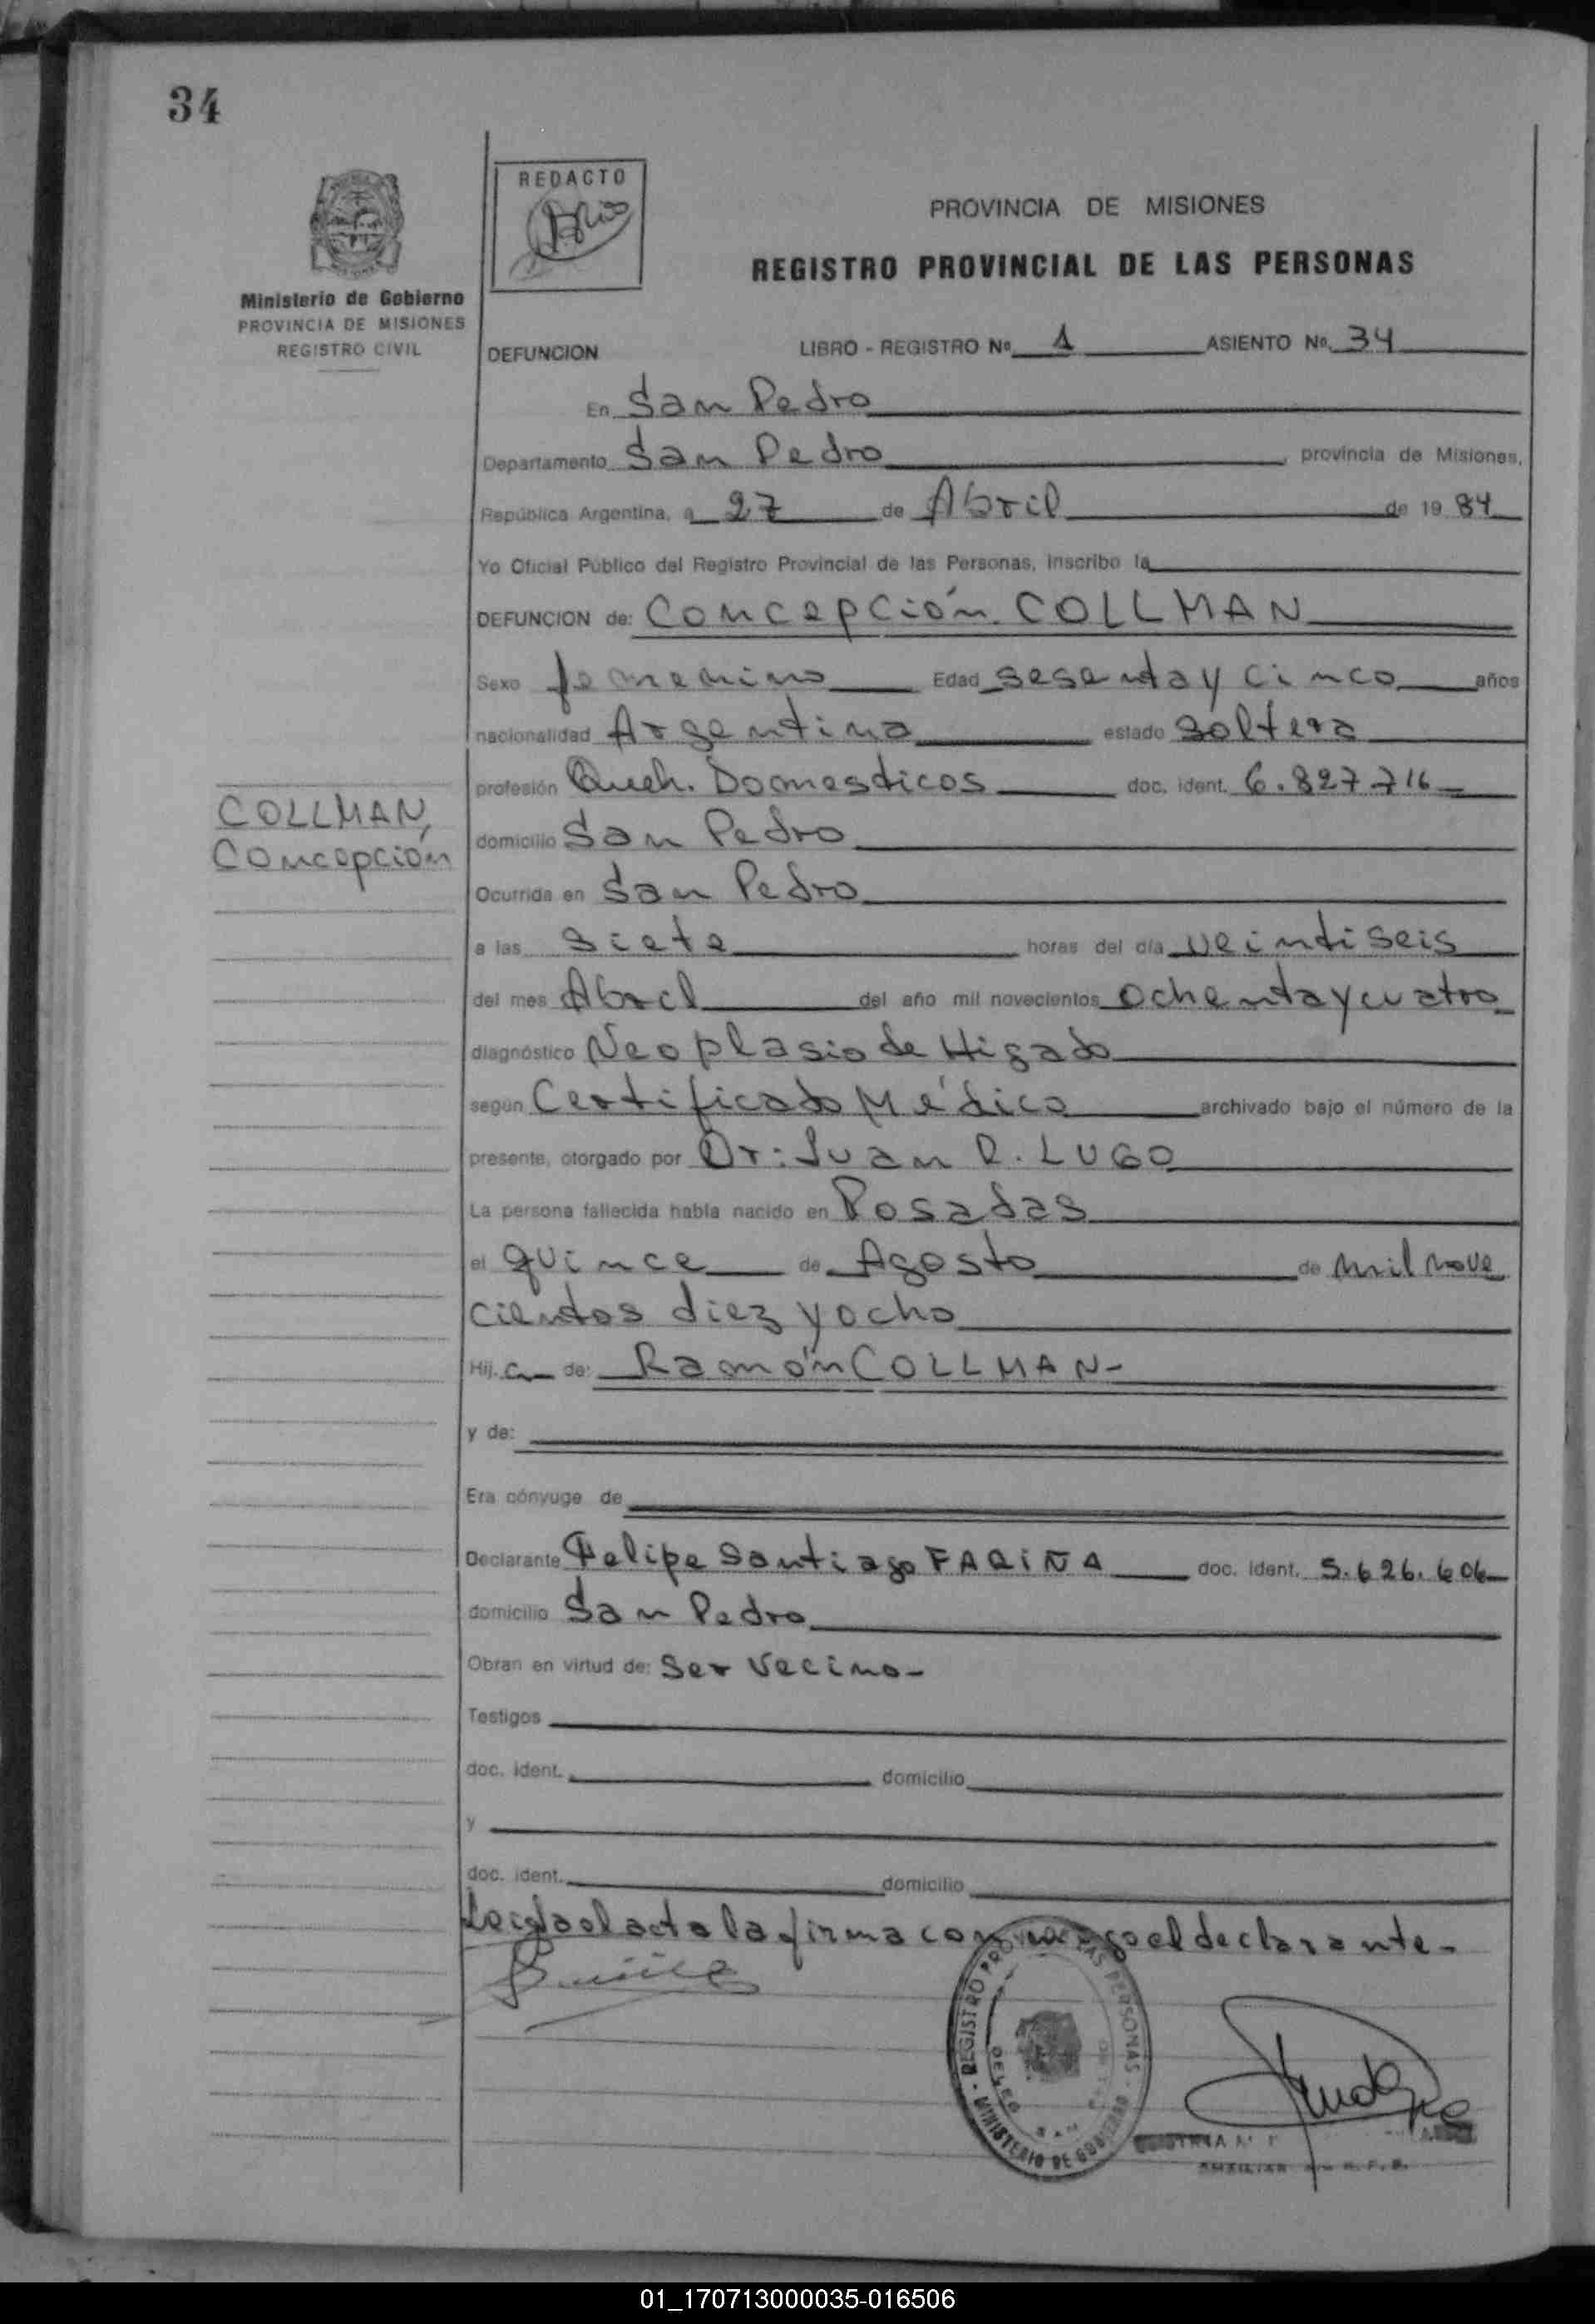 34
REDACTO
PROVINCIA DE MISIONES
REGISTRO PROVINCIAL DE LAS PERSONAS
Ministerio de Gobierno
PROVINCIA DE MISIONES
REGISTRO CIVIL
DEFUNCION LIBRO - REGISTRO Nº 1 ASIENTO Nº 34
En San Pedro
Departamento San Pedro, provincia de Misiones,
República Argentina, a 27 de Abril de 1984
Yo Oficial Público del Registro Provincial de las Personas, inscribo la
DEFUNCION de: Concepción COLLMAN
Sexo femenino Edad sesenta y cinco años
nacionalidad Argentina estado soltera
profesión Queh. Domesticos doc. ident. 6.827.716
COLLMAN,
Concepción
domicilio San Pedro
Ocurrida en San Pedro
a las siete horas del día veintiseis
del mes Abril del año mil novecientos ochenta y cuatro
diagnóstico Neoplasia de Higado
según Certificado Médico archivado bajo el número de la
presente, otorgado por Dr: Juan R. LUGO
La persona fallecida había nacido en Posadas
el quince de Agosto de mil nove
cientos diez y ocho
Hij a de: Ramón COLLMAN-
y de:
Era cónyuge de
Declarante Felipe Santiago FARIÑA doc. ident. 5.626.606
domicilio San Pedro
Obran en virtud de: Ser Vecino-
Testigos
doc. ident. domicilio
y
doc. ident. domicilio
Leida el acta la firma conmigo el declarante-
REGISTRO PROVINCIAL DE LAS PERSONAS - MINISTERIO DE GOBIERNO
01_170713000035-016506